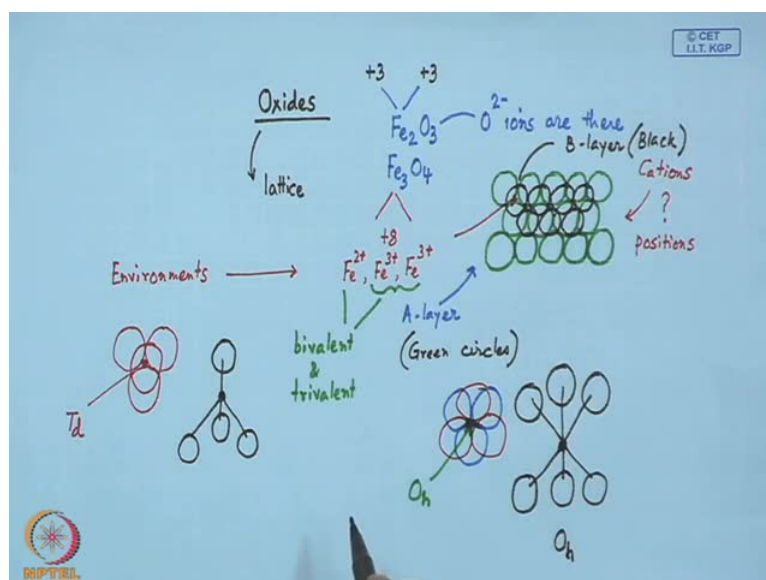 © CET
I.I.T. KGP
+3 +3
Oxides
Fe2O3 — O2- ions are there
B-layer (Black)
lattice
Fe3O4
Cations
?
positions
+8
Environments
Fe2+, Fe3+, Fe3+
A-layer
(Green circles)
bivalent
&
trivalent
Td
Oh
Oh
NPTEL